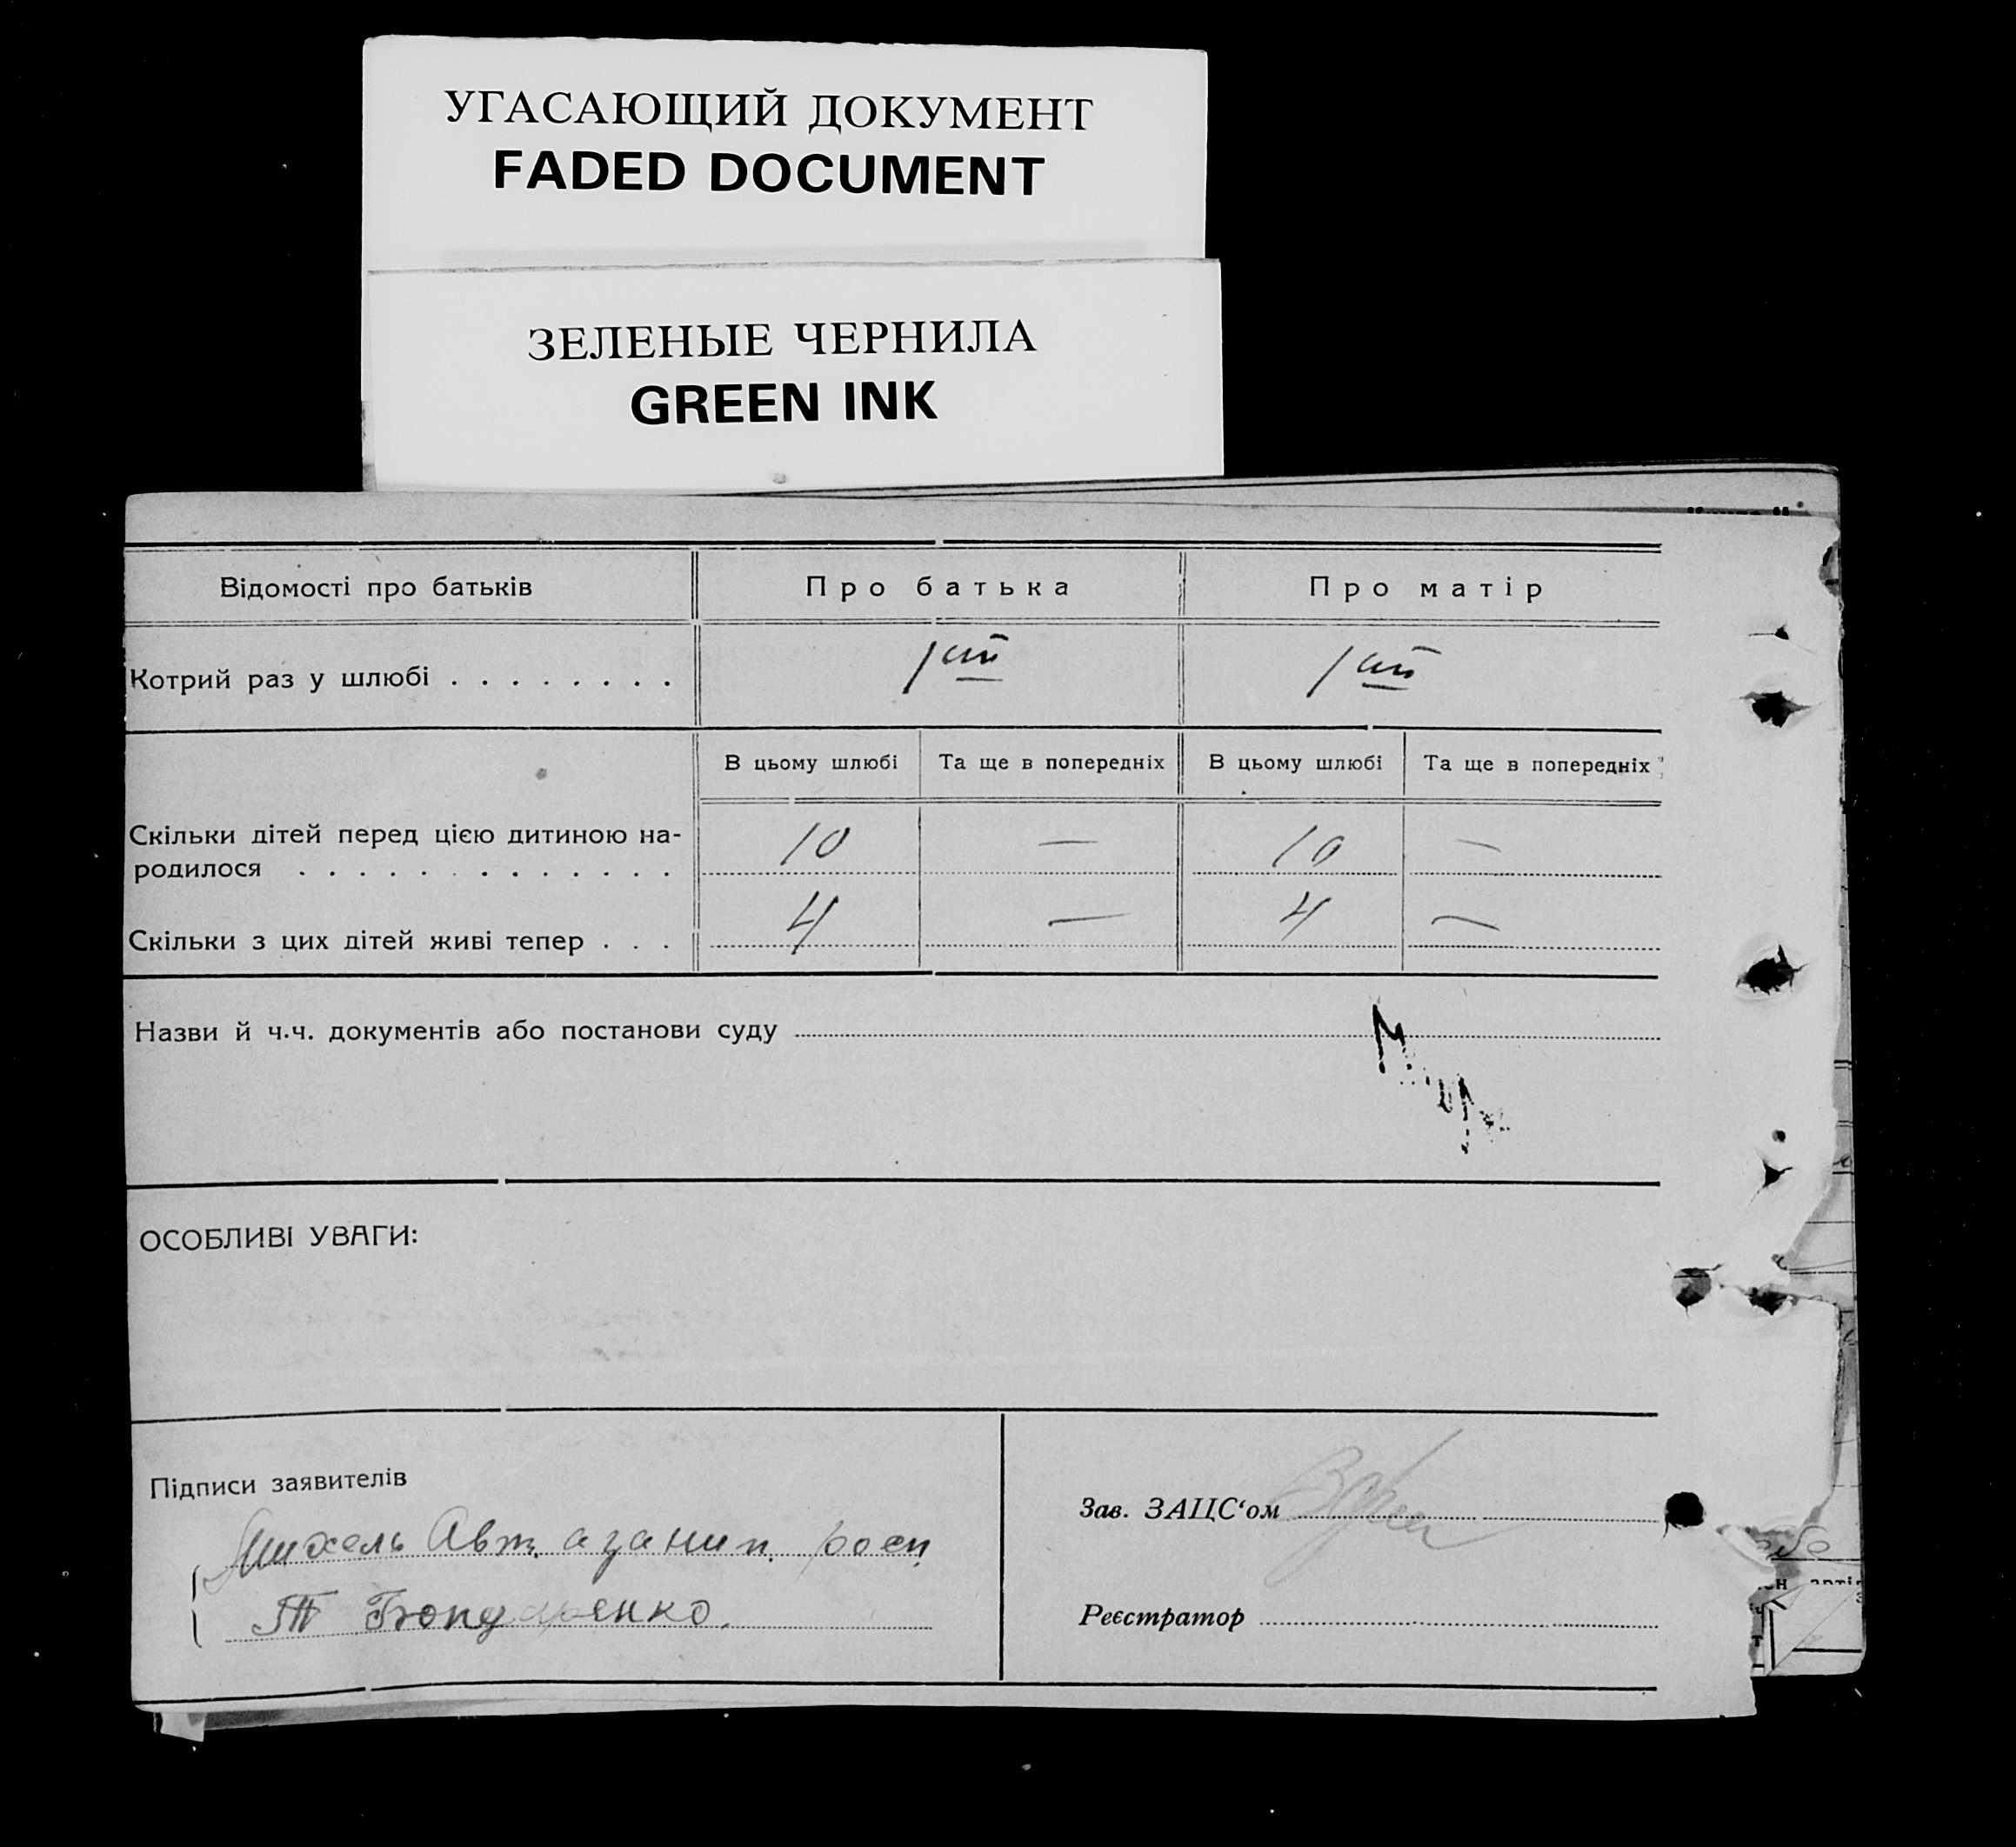 УГАСАЮЩИЙ ДОКУМЕНТ
FADED DOCUMENT
ЗЕЛЕНЫЕ ЧЕРНИЛА
GREEN INK
Відомості про батьків Про батька Про матір
Котрий раз у шлюбі . . . . . . . . 1ий 1ий
В цьому шлюбі Та ще в попередніх В цьому шлюбі Та ще в попередніх
Скільки дітей перед цією дитиною на-
родилося . . . . . . . . . . . . . 10 — 10 —
Скільки з цих дітей живі тепер . . . 4 — 4 —
Назви й ч.ч. документів або постанови суду
ОСОБЛИВІ УВАГИ:
Підписи заявителів
Зав. ЗАЦС‘ом
Т Бондаренко.
Реєстратор